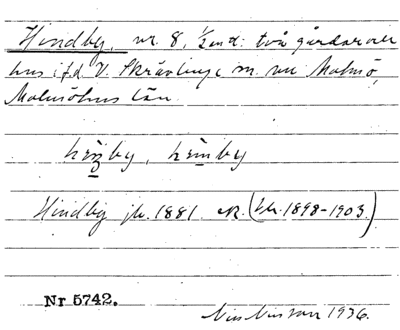 Hindby, nr. 8, 1/2 m d: två gårdar och
hus i f.d V. Skrävlinge n. nu Malmö,
Malmöhus län.
hìnby, hìmby
Hindby jb. 1881. GK. (1898-1903.)
Nr 5742.
Nils Nilsson 1936.